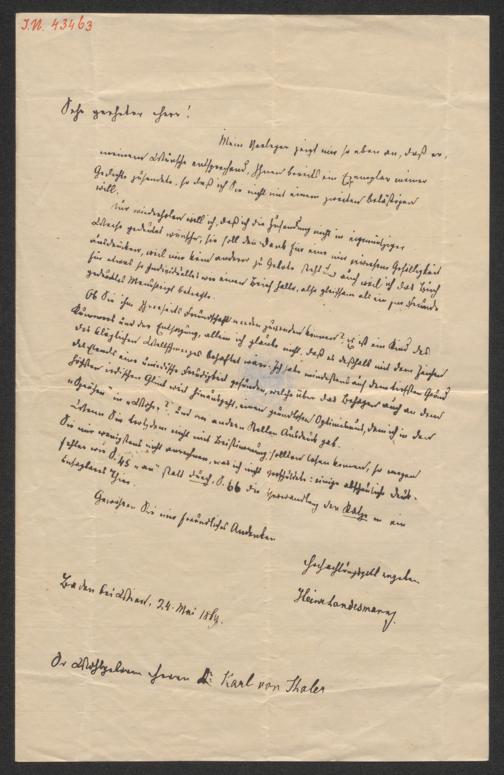 I.N. 43463
Sehr geehrter Herr!
Mein Verleger zeigt mir so eben an, daß er,
meinem Wunsche entsprechend, Ihnen bereits ein Exemplar meiner
Gedichte zusendete, so daß ich Sie nicht mit einem zweiten belästigen
will.
Nur wiederholen will ich, daß ich die Zusendung nicht in eigennütziger
Weise gedeutet wünsche, sie soll den Dank für eine mir erwiesene Gefälligkeit
ausdrücken, weil mir kein anderer zu Gebote steht und auch weil ich das Buch
für etwas so Individuelles wie einen Brief halte, also gleichsam als ein zur Freunde
gedrucktes Manuscript betrachte.
Ob Sie ihm Ihrerseits Freundschaft werden zuwenden können? Es ist ein Kind des
Kummers und der Entsagung, allein ich glaube nicht, daß es deßhalb mit dem Zeichen
des kläglichen Weltschmerzes behaftet wäre; ich habe mindestens auf dem tiefsten Grund
des Elends eine Freudigkeit gefunden, welche über das Behagen auch an dem
höchsten irdischen Glück weit hinausgeht, einen grundlosen Optimismus, dem ich in den
und an andern Stellen Ausdruck gab.
Wenn Sie trotzdem nicht mit Beistimmung sollten lesen können, so mögen
Sie mir wenigstens nicht anrechnen, was ich nicht verschuldete: einige abscheuliche Druck-
fehler wie S. 45 "an" statt durch, S. 66 die Verwandlung der Katze in ein
Thier.
Gewähren Sie ein freundliches Andenken
Hochachtungsvoll ergeben
Heinr. Landesmann.
Baden bei Wien, 24. Mai 1869.
Sr Wohlgeboren Herrn Dr. Karl von Thaler